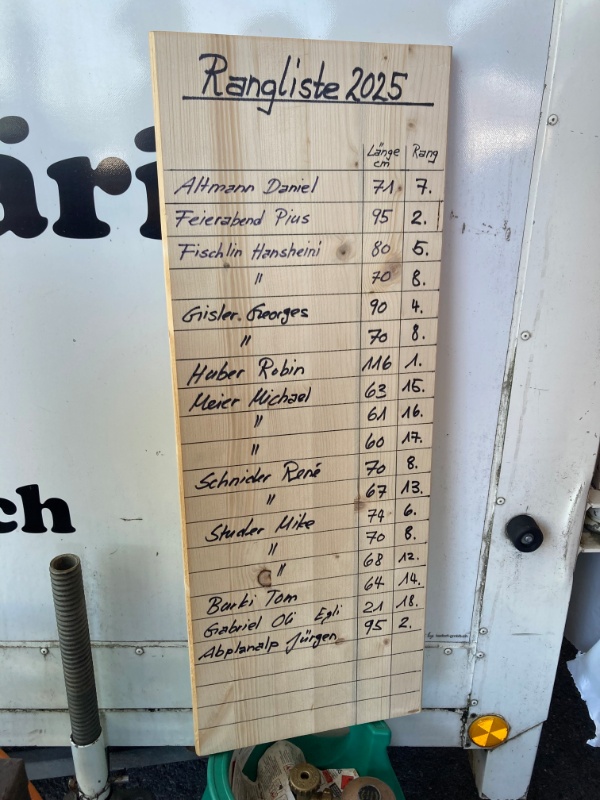 Rangliste 2025
Länge cm Rang
Altmann Daniel 71 7.
Feierabend Pius 95 2.
Fischlin Hansheini 80 5.
" 70 8.
Gisler Georges 90 4.
" 70 8.
Huber Robin 116 1.
Meier Michael 63 15.
" 61 16.
" 60 17.
Schnider René 70 8.
" 67 13.
Studer Mike 74 6.
" 70 8.
" 68 12.
Burki Tom 64 14.
Gabriel Oli Egli 21 18.
Abplanalp Jürgen 95 2.
äri
ch